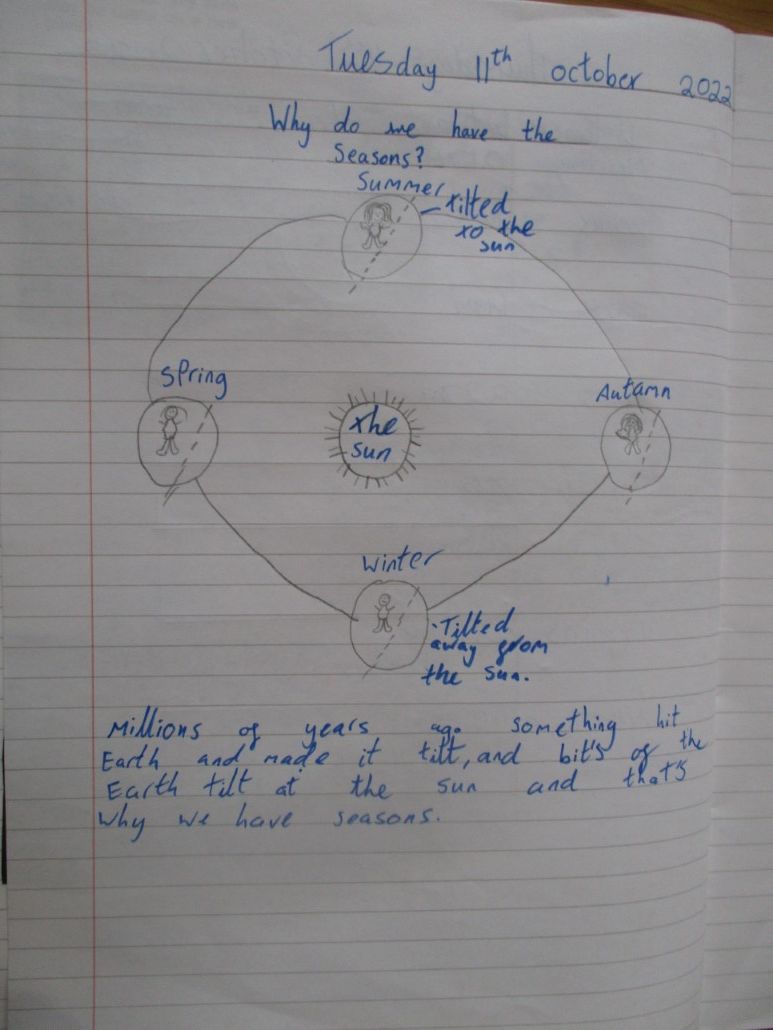 Tuesday 11th october 2022
Why do we have the
Seasons?
Summer
tilted
to the
sun
Spring
Autamn
the
sun
Winter
·Tilted
away from
the sun.
Millions of years ago something hit
Earth and made it tilt, and bit's of the
Earth tilt at the sun and that's
why we have seasons.